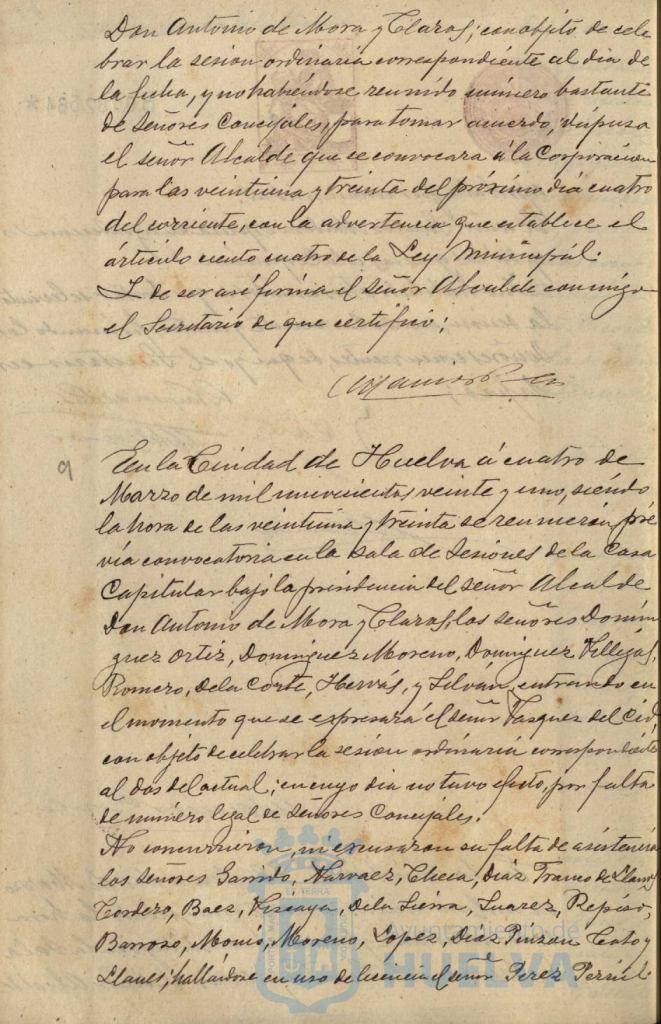 Don Antonio de Mora y Claros; con objeto de cele
brar la sesion ordinaria correspondiente al dia de
la fecha, y no habiéndose reunido número bastante
de señores Concejales, para tomar acuerdo, dispuso
el señor Alcalde que se convocara á la Corporación
para las veintiuna y treinta del próximo dia cuatro
del corriente, con la advertencia que establece el
árticulo ciento cuatro de la Ley Municipal.
Y de ser asi firma el señor Alcalde conmigo
el Secretario de que certifico;
9
En la Ciudad de Huelva á cuatro de
Marzo de mil novecientos veinte y uno, siendo
la hora de las veintiuna y treinta se reunieron pré
via convocatoria en la sala de Sesiones de la Casa
Capitular bajo la presidencia del señor Alcalde
Don Antonio de Mora y Claros, los señores Domin
guez Ortiz, Dominguez Moreno, Dominguez Villegas,
Romero, de la Corte, Hervás, y Silván, entrando en
el momento que se expresará el señor Vasquez del Cid,
con objeto de celebrar la sesion ordinaria correspondiente
al dos del actual; en cuyo dia no tuvo efecto, por falta
de número legal de Señores Concejales.
No concurrieron, ni excusaron su falta de asistencia
los señores Garrido, Narvaez, Checa, Diaz Franco de Llanos,
Cordero, Baez, Viscaya, de la Sierra, Suarez,
Barroso, Moreno, Lopez, Diaz Pinzon Coto y
Llanes; hallándose en uso de licencia el señor Perez
Ayuntamiento de
HUELVA